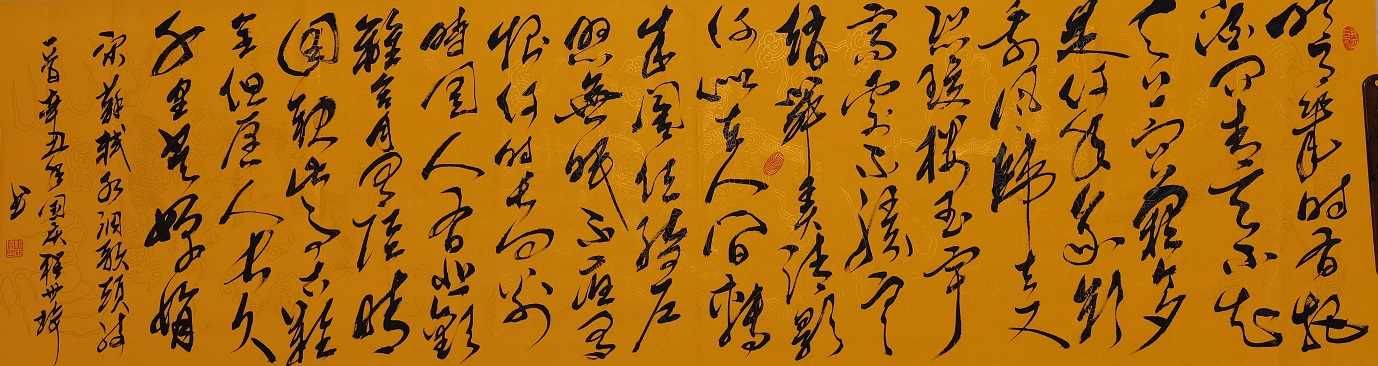 明月幾時有把
酒問青天不知
天上宮闕今夕
是何年我欲
乘风歸去又
恐瓊樓玉宇
高處不勝寒
起舞弄清影
何似在人間轉
朱閣低綺户
照無眠不應有
恨何时長向别
時圓人有悲歡
離合月有陰晴
圓缺此事古難
全但願人長久
千里共嬋娟
宋蘇軾水調歌頭詞
一首辛丑年國慶
書